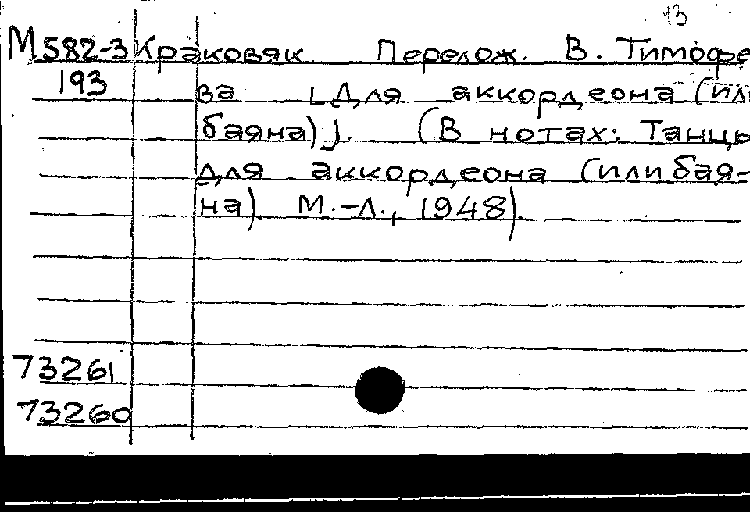 13
М 582-3 Краковяк. Перелож. В. Тимофе
193 ва [Для аккордеона (или
баяна)]. (В нотах: Танцы
для аккордеона (или бая-
на). М.-Л., 1948).
73261
73260